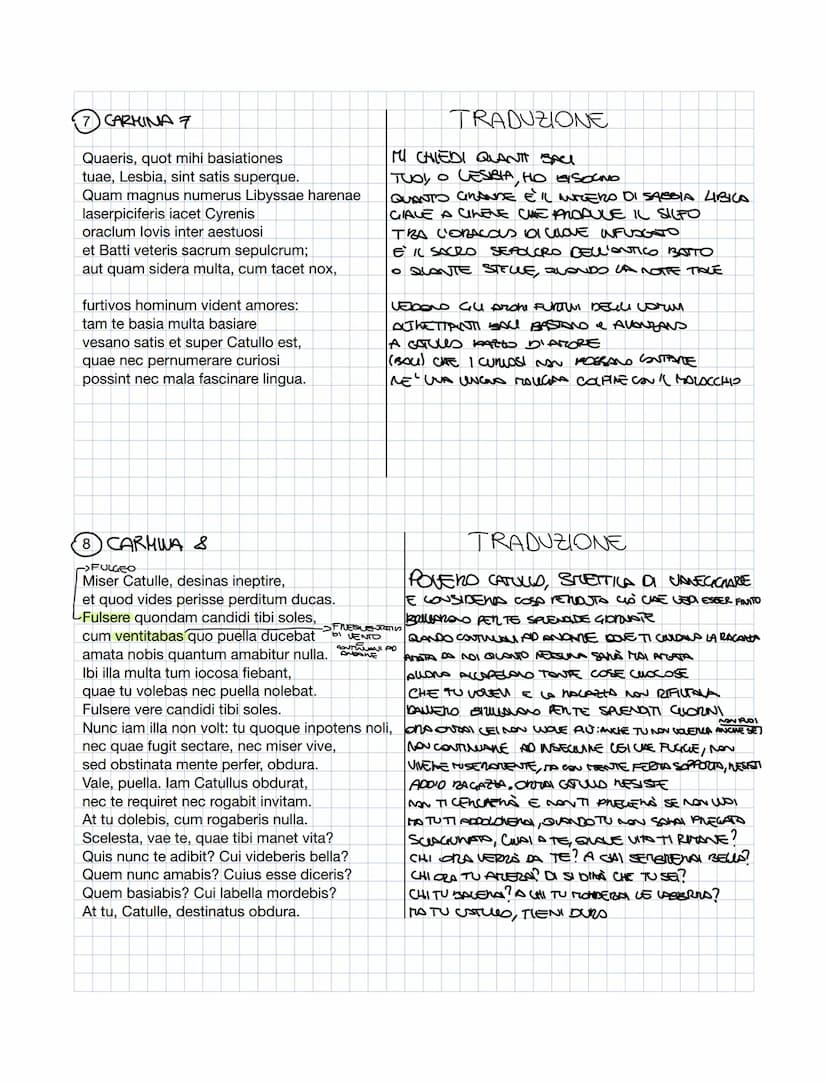 7 CARMINA 7
TRADUZIONE
Quaeris, quot mihi basiationes
MI CHIEDI QUANTI BACI
tuae, Lesbia, sint satis superque.
TUOI, O LESBIA, HO BISOGNO
Quam magnus numerus Libyssae harenae
QUANTO GRANDE È IL NUMERO DI SABBIA LIBICA
laserpiciferis iacet Cyrenis
GIACE A CIRENE CHE PRODUCE IL SILFO
oraclum Iovis inter aestuosi
TRA L'ORACOLO DI GIOVE INFUOCATO
et Batti veteris sacrum sepulcrum;
E IL SACRO SEPOLCRO DELL'ANTICO BATTO
aut quam sidera multa, cum tacet nox,
O QUANTE STELLE, QUANDO LA NOTTE TACE
furtivos hominum vident amores:
VEDONO GLI AMORI FURTIVI DEGLI UOMINI
tam te basia multa basiare
ALTRETTANTI BACI BASTANO E AVANZANO
vesano satis et super Catullo est,
A CATULLO PAZZO D'AMORE
quae nec pernumerare curiosi
(BACI) CHE I CURIOSI NON POSSANO CONTARE
possint nec mala fascinare lingua.
NE' UNA LINGUA MALIGNA COLPIRE CON IL MALOCCHIO
8 CARMINA 8
TRADUZIONE
→FULGEO
Miser Catulle, desinas ineptire,
POVERO CATULLO, SMETTILA DI VANEGGIARE
et quod vides perisse perditum ducas.
E CONSIDERA COSA PERDUTA CIÒ CHE VEDI ESSER FINITO
Fulsere quondam candidi tibi soles,
BRILLARONO PER TE SPLENDIDE GIORNATE
cum ventitabas quo puella ducebat
→FREQUENTATIVO DI VENTO
E CONTINUARE AD ANDARE
QUANDO CONTINUAVI AD ANDARE DOVE TI GUIDAVA LA RAGAZZA
amata nobis quantum amabitur nulla.
AMATA DA NOI QUANTO NESSUNA SARÀ MAI AMATA
Ibi illa multa tum iocosa fiebant,
ALLORA ACCADEVANO TANTE COSE GIOCOSE
quae tu volebas nec puella nolebat.
CHE TU VOLEVI E LA RAGAZZA NON RIFIUTAVA
Fulsere vere candidi tibi soles.
DAVVERO BRILLARONO PER TE SPLENDITI GIORNI
Nunc iam illa non volt: tu quoque inpotens noli,
ORA ORMAI LEI NON VUOLE PIÙ: ANCHE TU NON VOLERLA ANCHE SE NON PUOI
nec quae fugit sectare, nec miser vive,
NON CONTINUARE AD INSEGUIRE LEI CHE FUGGE, NON
sed obstinata mente perfer, obdura.
VIVERE MISERAMENTE, MA CON MENTE FERMA SOPPORTA, RESISTI
Vale, puella. Iam Catullus obdurat,
ADDIO RAGAZZA. ORMAI CATULLO RESISTE
nec te requiret nec rogabit invitam.
NON TI CERCHERÀ E NON TI PREGHERÀ SE NON VUOI
At tu dolebis, cum rogaberis nulla.
MA TU TI ADDOLORERAI, QUANDO TU NON SARAI PREGATA
Scelesta, vae te, quae tibi manet vita?
SCIAGURATA, GUAI A TE, QUALE VITA TI RIMANE?
Quis nunc te adibit? Cui videberis bella?
CHI ORA VERRÀ DA TE? A CHI SEMBRERAI BELLA?
Quem nunc amabis? Cuius esse diceris?
CHI ORA TU AMERAI? DI SI DIRÀ CHE TU SEI?
Quem basiabis? Cui labella mordebis?
CHI TU BACERAI? A CHI TU MORDERAI LE LABBRA?
At tu, Catulle, destinatus obdura.
MA TU CATULLO, TIENI DURO